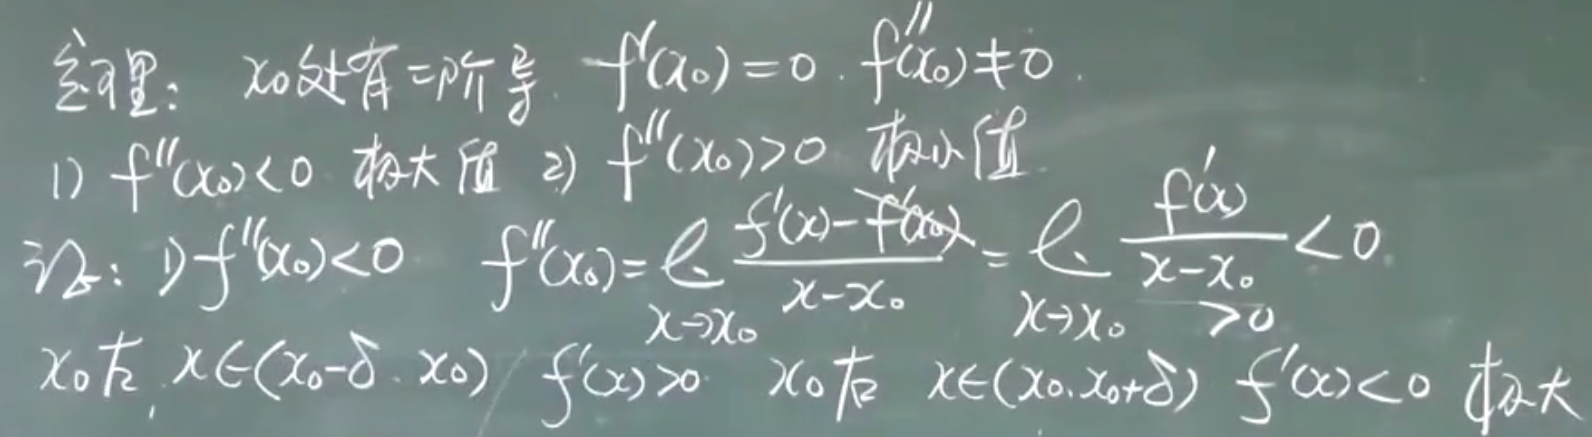 定理: x₀处有二阶导. f'(x₀)=0. f''(x₀)≠0.
1) f''(x₀)<0 极大值 2) f''(x₀)>0 极小值
证: 1) f''(x₀)<0 f''(x₀)=lim_{x→x₀} (f'(x)-f'(x₀))/(x-x₀) = lim_{x→x₀} f'(x)/(x-x₀) <0. >0
x₀左. x∈(x₀-δ. x₀) f'(x)>0. x₀右 x∈(x₀. x₀+δ) f'(x)<0 极大